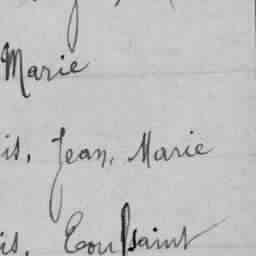 Marie
is, Jean, Marie
is, Toussaint